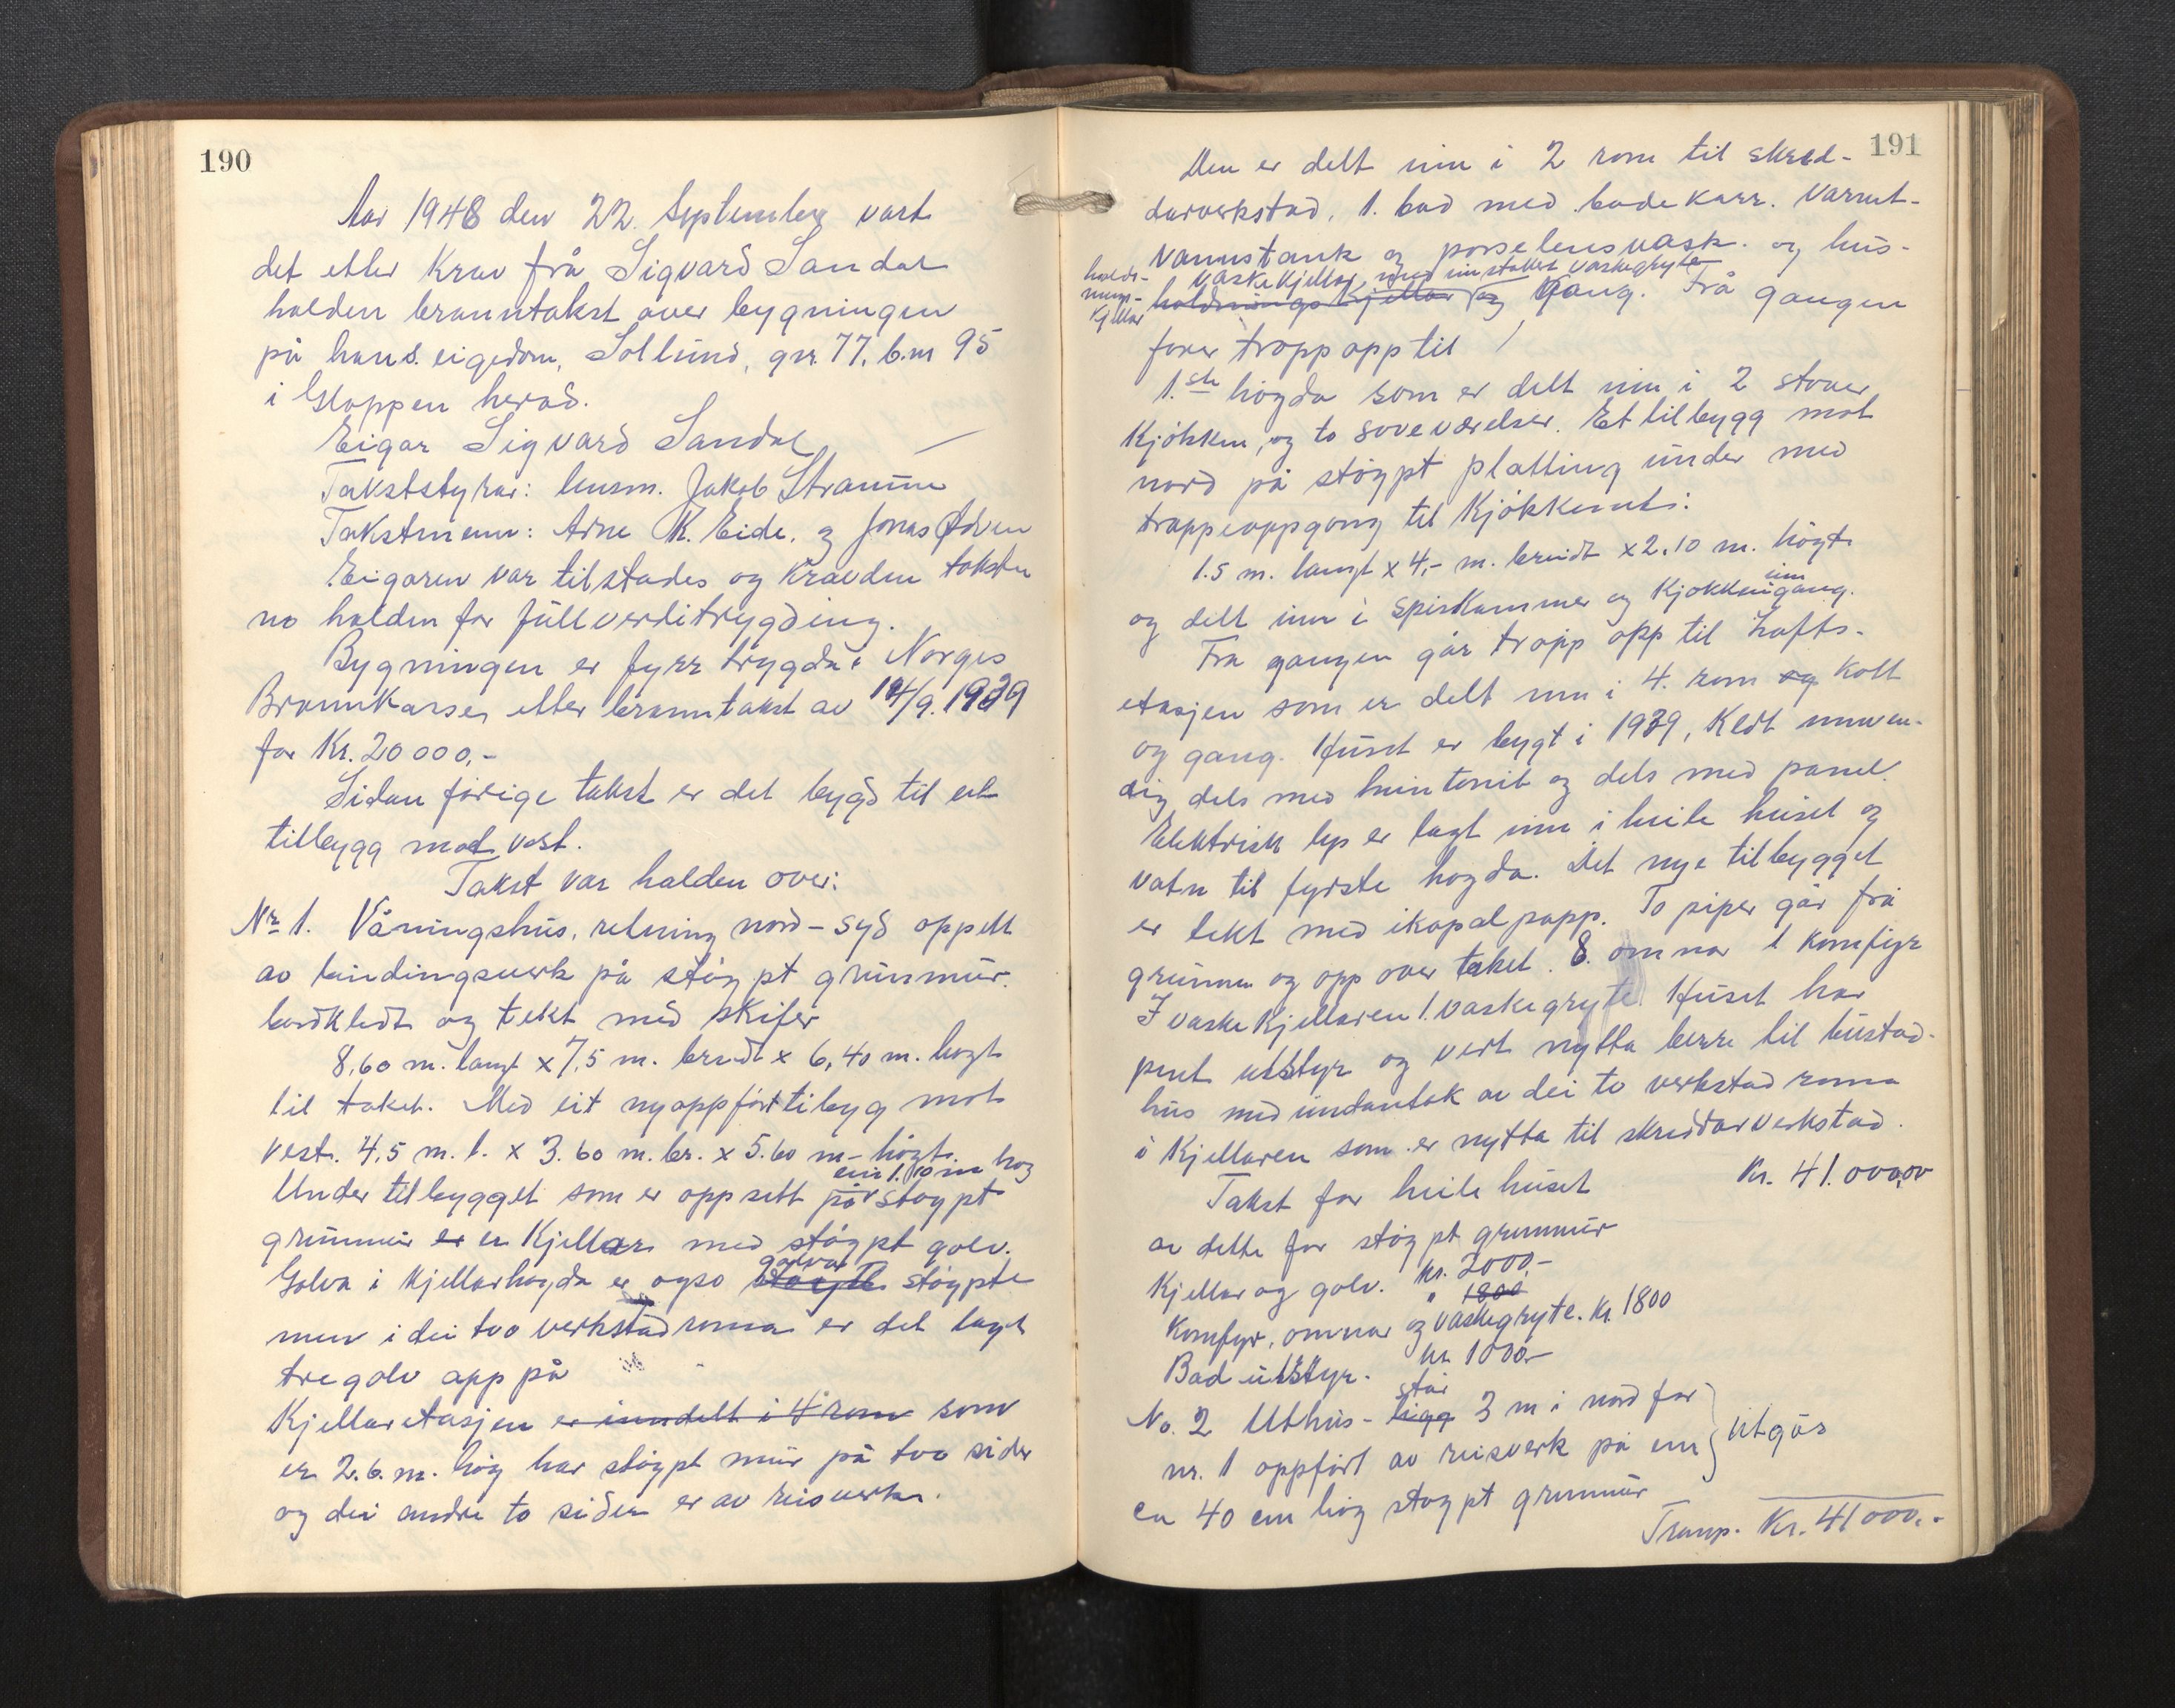 190
Aar 1948 den 22. September vart
det etter Krav frå Sigvard Sandal
halden branntakst over bygningen
på hans eigedom, Sollund, gnr. 77, b.nr 95
i Gloppen herad.
Eigar Sigvard Sandal
Takststyrar: lensm. Jakob Straume
Takstmenn: Arne K. Eide. og Jonas Ødven
Eigaren var tilstades og Kravden taksten
no halden for fullverditrygding.
Bygningen er fyrr trygda i Norges
Brannkasse, etter branntakst av 14/9. 1939
for Kr. 20 000,-
Sidan førige takst er det bygd til eit
tilbygg mot vest.
Takst var halden over:
Nr. 1. Våningshus, retning nord - syd oppsett
av bindingsverk på støypt grunmur.
bordkledt og tekt med skifer
8,60 m. langt x 7,5 m. breidt x 6,40 m. høgt
til taket. Med eit nyoppført tilbygg mot
vest. 4,5 m. l. x 3.60 m. br. x 5.60 m høgt.
ein 1.10 m høg
Under tilbygget som er oppsett på støypt
grunmur er er Kjellar med støypt golv.
golva
Golva i Kjellarhøgda er også støypte støypte
men i dei two verkstadroma er det lagt
tregolv opp på
Kjellaretasjen er inndelt i 4 rom som
er 2.6. m. høg har støypt mur på two sider
og dei andre to sider er av reisverk.
191
Den er delt inn i 2 rom til skred-
darverkstad, 1. bad med badekarr. Varmt-
vannstank og porselensvask. og hus-
halds- vaskekjellar, med innstøket vaskegryte
nings-
kjellar
holdningskjellar og Gang. Frå gangen
fører tropp opp til
1.ste høgda som er delt inn i 2 stover
Kjøkken, og to soveværelser. Et tilbygg mot
nord på støypt platting under med
trappeoppgong til Kjøkkenet:
1.5 m. langt x 4,- m. breidt x 2,10 m. høgt
inn
og delt inn i spiskammer og Kjøkkengang.
Fra gangen går tropp opp til Lofts-
etasjen som er delt inn i 4. rom og kott
og gang. Huset er bygt i 1939, Kledt innven-
dig dels med huntonit og dels med panel.
Elektrisk lys er lagt inn i heile huset og
vatn til fyrste høgda. Det nye tilbygget
er tekt med ikopalpapp. To piper går frå
grunnen og opp over taket. 8. omnar 1 komfyr
I vaskekjellaren 1. vaskegryte. Huset har
pent utstyr og vert nytta berre til bustad-
hus med undantak av dei to verkstad roma
i Kjellaren som er nytta til skreddarverkstad.
Takst for heile huset Kr. 41.000,00
av dette for støypt grunmur
Kjellar og golv. Kr. 2000,-
" 1800
Komfyr, omnar og vaskegryte. Kr. 1800
Bad utstyr. Kr 1000,-
står
No. 2 Uthus - ligg 3 m i nord for
nr. 1 oppført av reisverk på ein
en 40 cm høg støypt grunmur
Utgår
Transp. Kr. 41 000,-